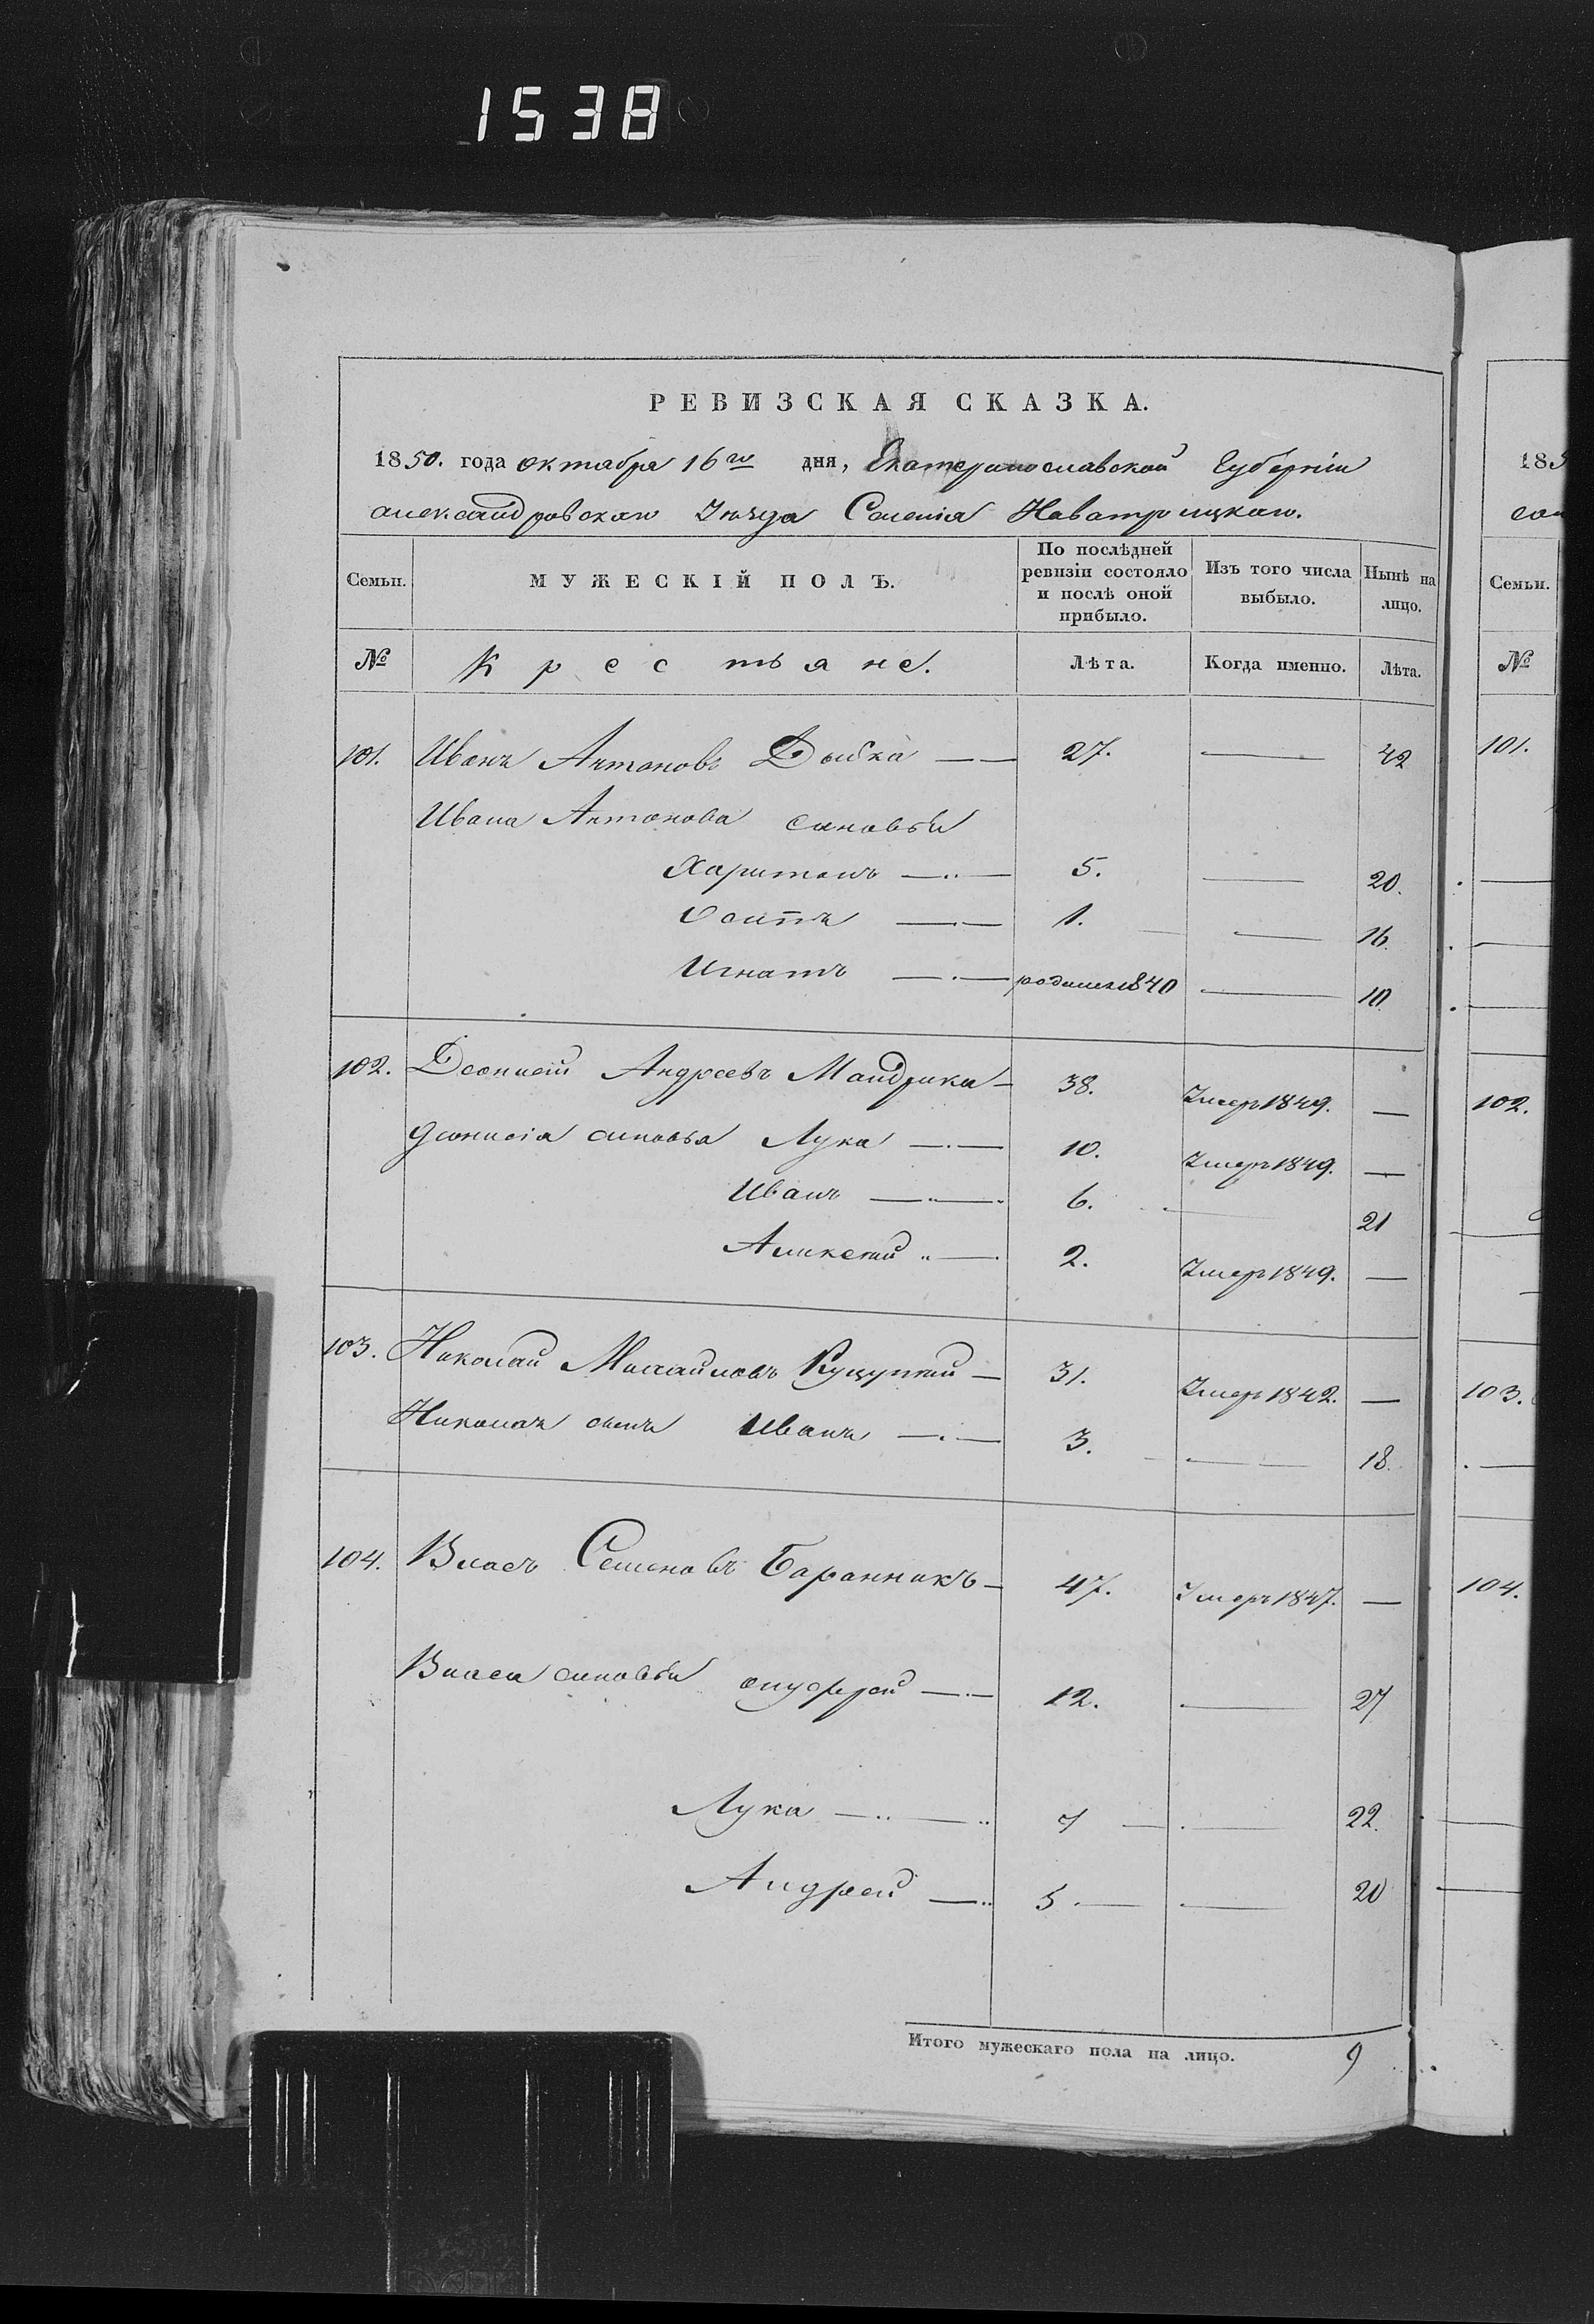 1538
РЕВИЗСКАЯ СКАЗКА.
1850. года октября 16го дня, Екатеринославской Губерніи
александровскаго Уѣзда Селенія Новатроицкаго.
Семьи. МУЖЕСКІЙ ПОЛЪ. По послѣдней ревизіи состояло и послѣ оной прибыло. Изъ того числа выбыло. Нынѣ на лицо.
№ Крестьяне. Лѣта. Когда именно. Лѣта.
101. Иванъ Антоновъ Дыбка — 27. — 42
Ивана Антонова сыновьи
Харитонъ — 5. — 20.
Осипъ — 1. — 16.
Игнатъ — родился 1840 — 10
102. Деонисій Андреевъ Мандрика — 38. Умеръ 1849. —
Деонисія сыновья Лука — 10. Умеръ 1849. —
Иванъ — 6. 21
2. Умеръ 1849. —
103. Николай Михайловъ — 31. Умеръ 1842. —
сынъ Иванъ — 3. — 18.
104. Власъ Семеновъ Баранникъ — 47. Умеръ 1847. —
Власа сыновьи онуфрей — 12. — 27
Лука — 7 — 22.
Андрей — 5 — 20
Итого мужескаго пола на лицо. 9
185
Семьи.
№
101.
102.
103.
104.